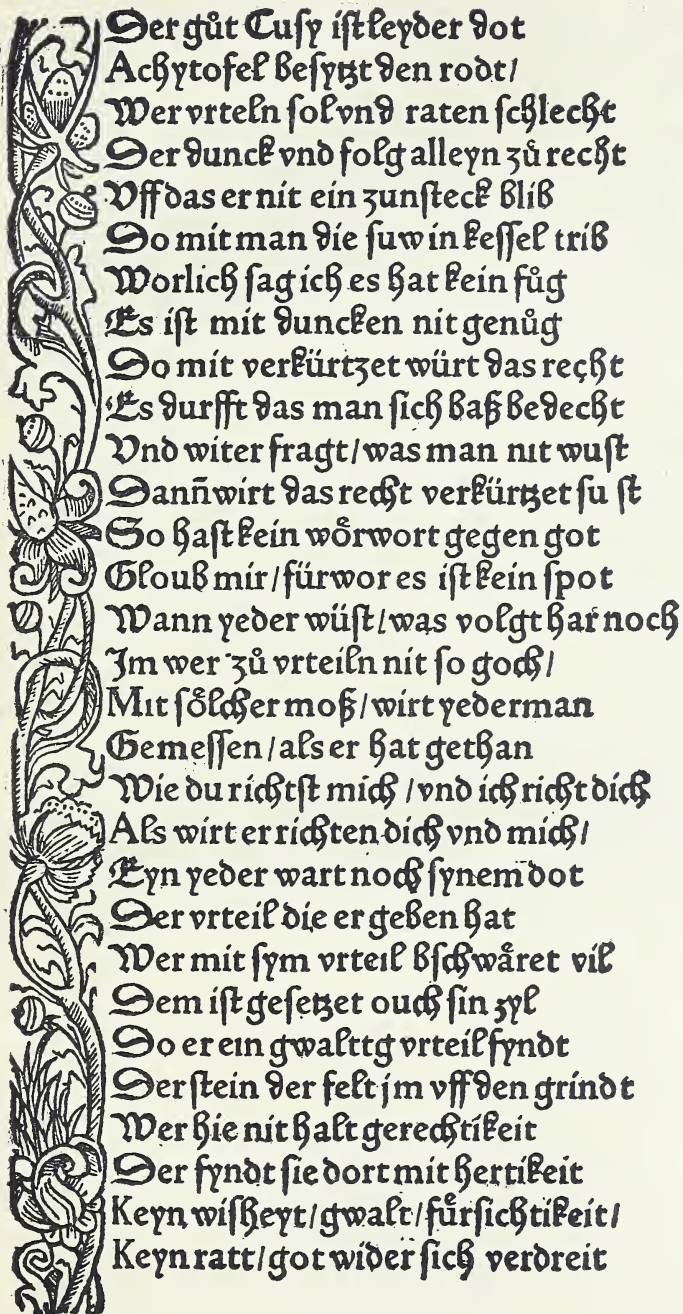 Der gůt Cusy ist leyder dot
Achytofel besytzt den rodt/
Wer vrteln sol vnd raten schlecht
Der dunck vnd folg alleyn zů recht
Vff das er nit ein zunsteck blib
Do mit man die suw in kessel trib
Worlich sag ich es hat kein fůg
Es ist mit duncken nit genůg
Do mit verkürtzet würt das recht
Es durfft das man sich baß bedecht
Vnd witer fragt/was man nit wust
Dann̄ wirt das recht verkürtzet su st
So hast kein wörwort gegen got
Gloub mir/fürwor es ist kein spot
Wann yeder wüst/was volgt har noch
Im wer zů vrteiln nit so goch/
Mit sölcher moß/wirt yederman
Gemessen/als er hat gethan
Wie du richtst mich/vnd ich richt dich
Als wirt er richten dich vnd mich/
Eyn yeder wart noch synem dot
Der vrteil die er geben hat
Wer mit sym vrteil bschwäret vil
Dem ist gesetzet ouch sin zyl
Do er ein gwalttg vrteil fyndt
Der stein der felt jm vff den grindt
Wer hie nit halt gerechtikeit
Der fyndt sie dort mit hertikeit
Keyn wißheyt/gwalt/fürsichtikeit/
Keyn ratt/got wider sich verdreit